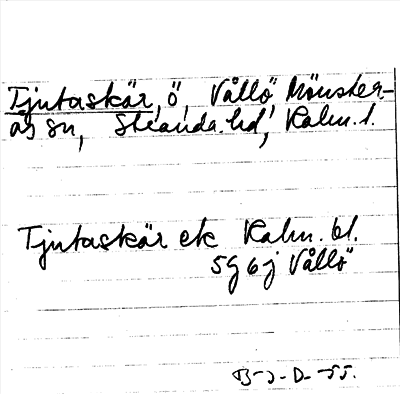 Tjutaskär, ö, Vållö, Mönster-
ås sn, Stranda hd, Kalm. l.
Tjutaskär ek Kalm. bl.
5g 6j Vållö
B-J-D-55.